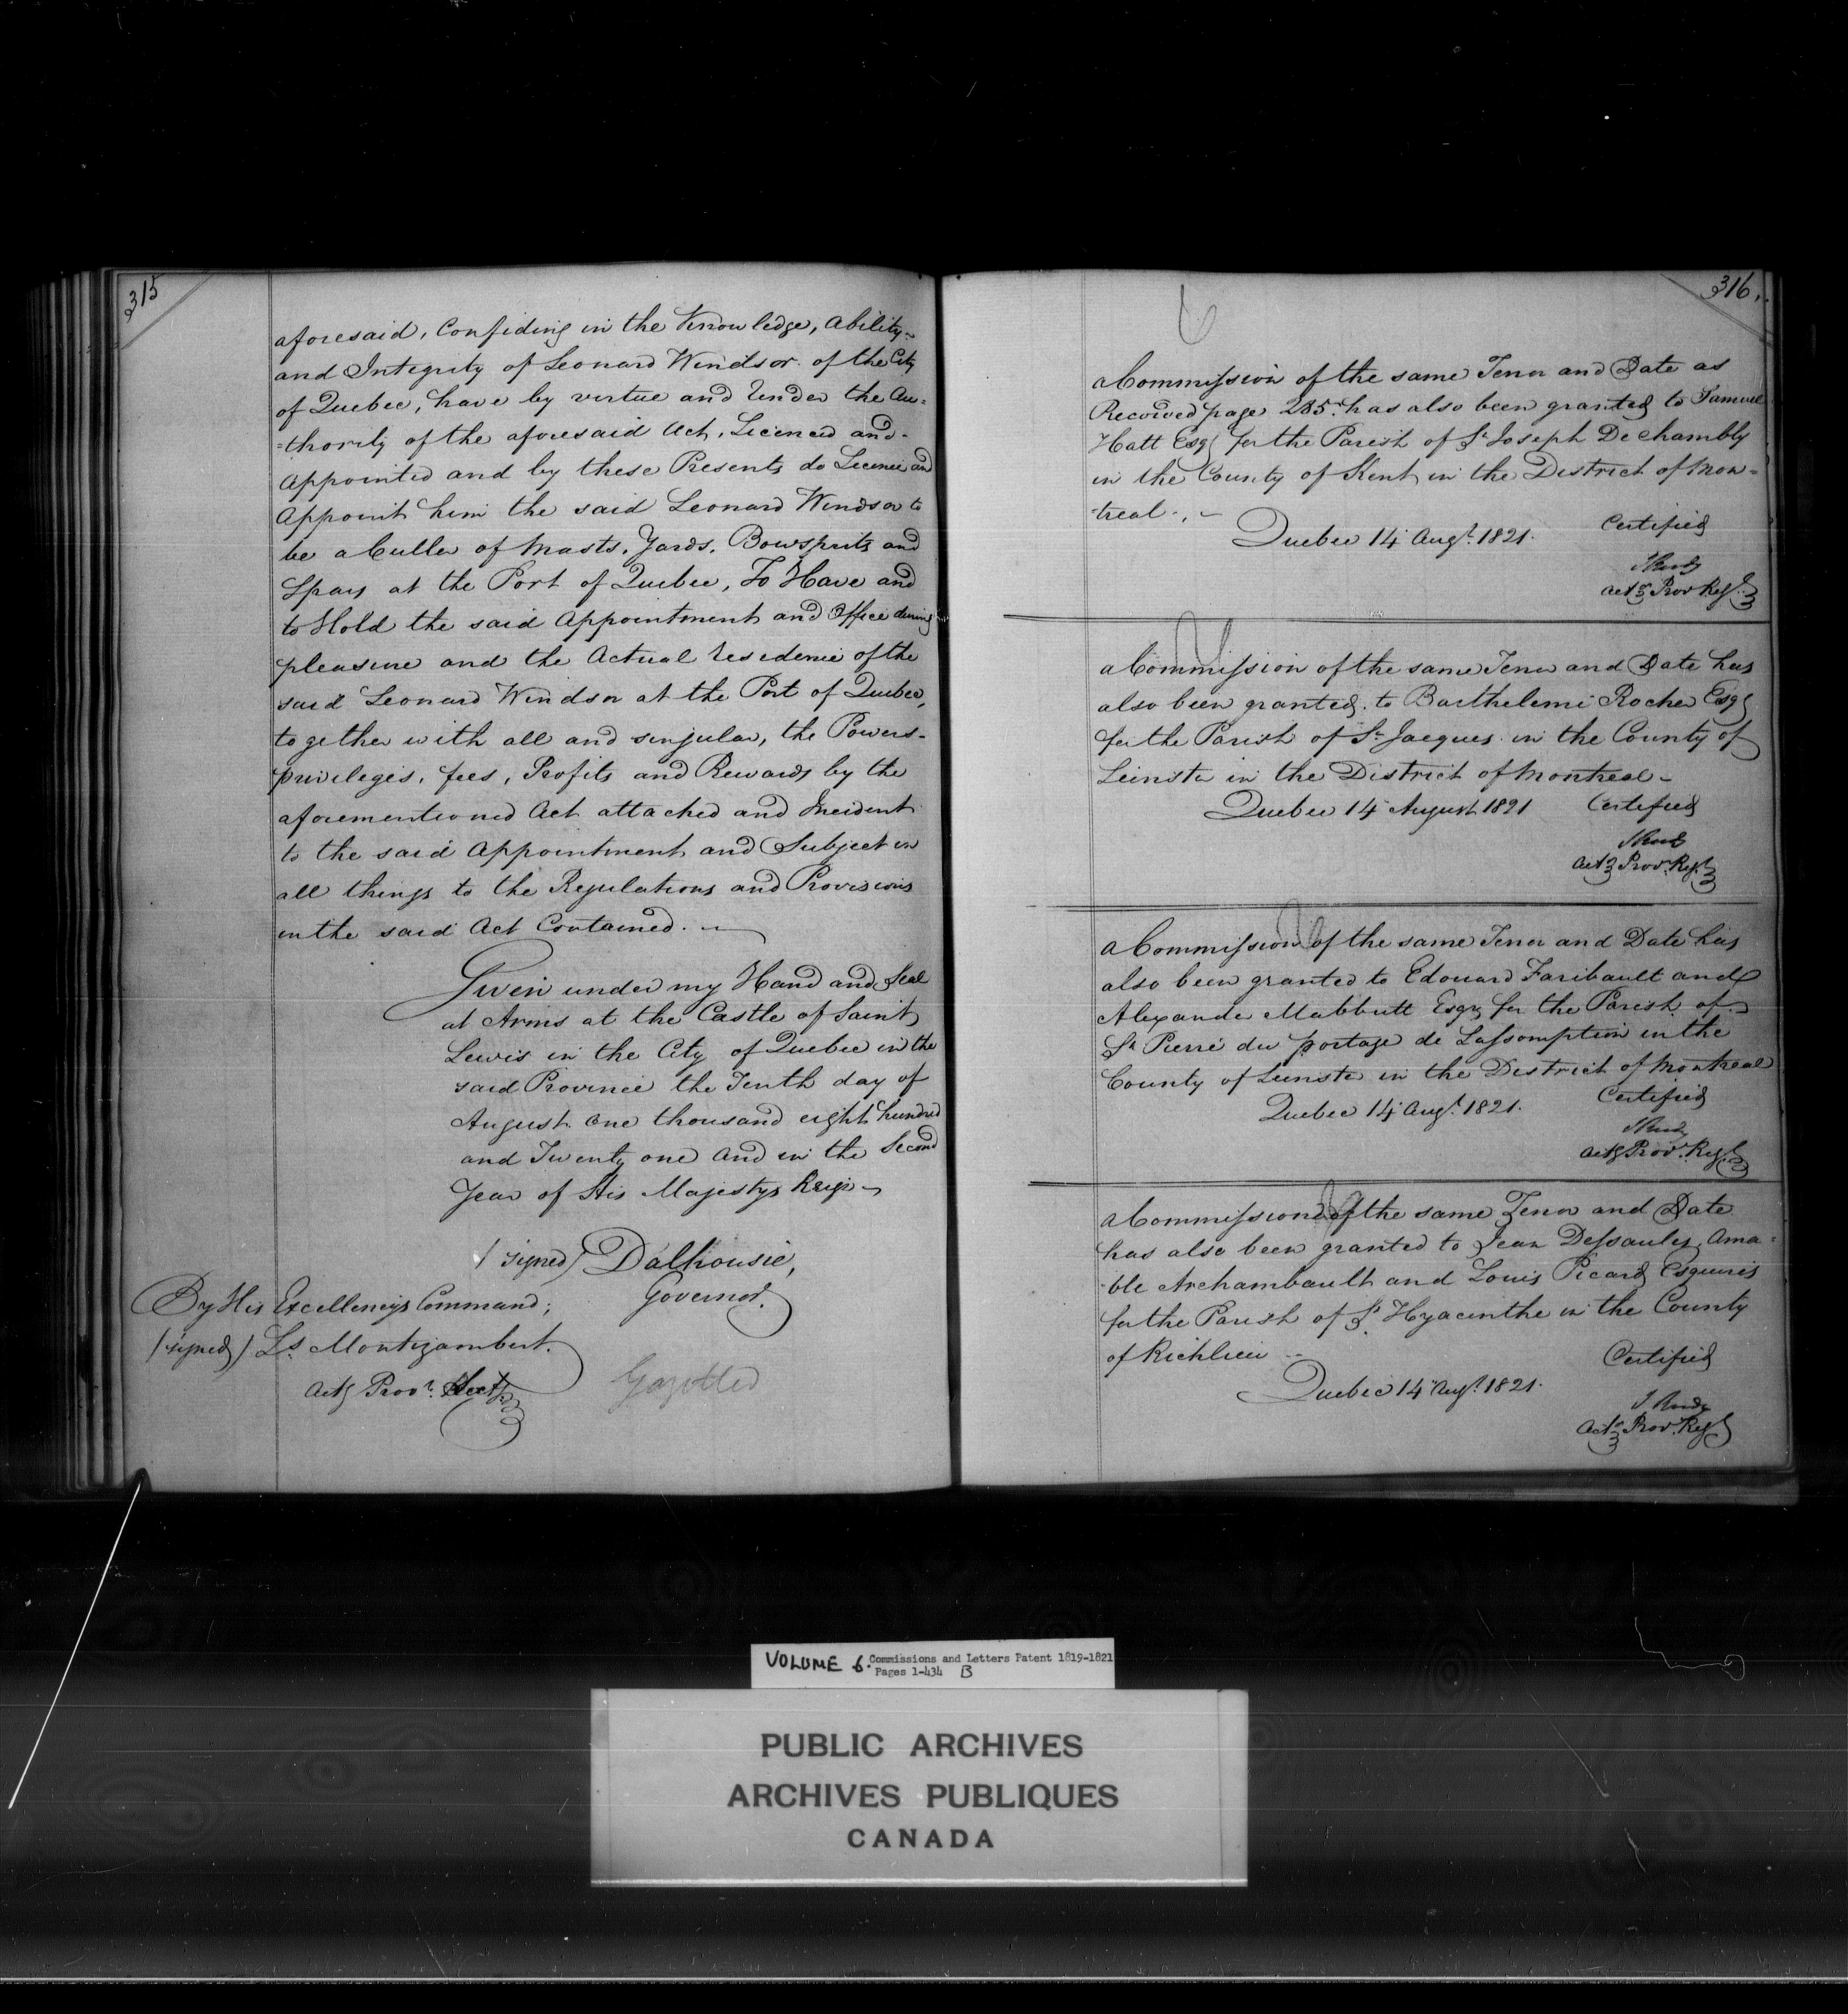 315
aforesaid, Confiding in the Knowledge, Ability
and Integrity of Leonard Windsor of the City
of Quebec, have by virtue and Under the Au=
=thority of the aforesaid Act, Licenced and
Appointed and by these Presents do Licence and
Appoint him the said Leonard Windsor to
be a Culler of Masts, Yards, Bowsprits and
Spars at the Port of Quebec, To Have and
to Hold the said Appointment and Office during
pleasure and the Actual Residence of the
said Leonard Windsor at the Port of Quebec,
together with all and singular, the Powers
privileges, fees, Profits and Rewards by the
aforementioned Act attached and Incident
to the said Appointment and Subject in
all things to the Regulations and Provisions
in the said Act Contained.
Given under my Hand and Seal
at Arms at the Castle of Saint
Lewis in the City of Quebec in the
said Province the Tenth day of
August One thousand eight hundred
and Twenty one And in the Second
Year of His Majestys Reign
(signed) Dalhousie,
Governor.
By His Excellencys Command;
(signed) Ls. Montizambert.
Actg Provl. Secty
Gazetted
316.
A Commission of the same Tenor and Date as
Recorded page 285. has also been granted to Samuel
Hatt Esqr for the Parish of St Joseph De Chambly
in the County of Kent in the District of Mon=
-treal.
Quebec 14 Augt. 1821.
Certified
Actg Prov Regr.
A Commission of the same Tenor and Date has
also been granted to Barthelemi Rocher Esqr
for the Parish of St. Jacques in the County of
Leinster in the District of Montreal
Quebec 14 August 1821
Certified
Actg Prov. Regr.
A Commission of the same Tenor and Date has
also been granted to Edouard Faribault and
Alexander Mabbutt Esqrs for the Parish of
St. Pierre du portage de Lassomption in the
County of Leinster in the District of Montreal
Quebec 14 Augt. 1821.
Certified
Actg Prov. Regr.
A Commission of the same Tenor and Date
has also been granted to Jean Dessaules, Ama=
-ble Archambault and Louis Picard Esquires
for the Parish of St. Hyacinthe in the County
of Richlieu
Quebec 14 Augt. 1821.
Certified
Actg Prov. Regr
VOLUME 6. Commissions and Letters Patent 1819-1821
Pages 1-434 B
PUBLIC ARCHIVES
ARCHIVES PUBLIQUES
CANADA